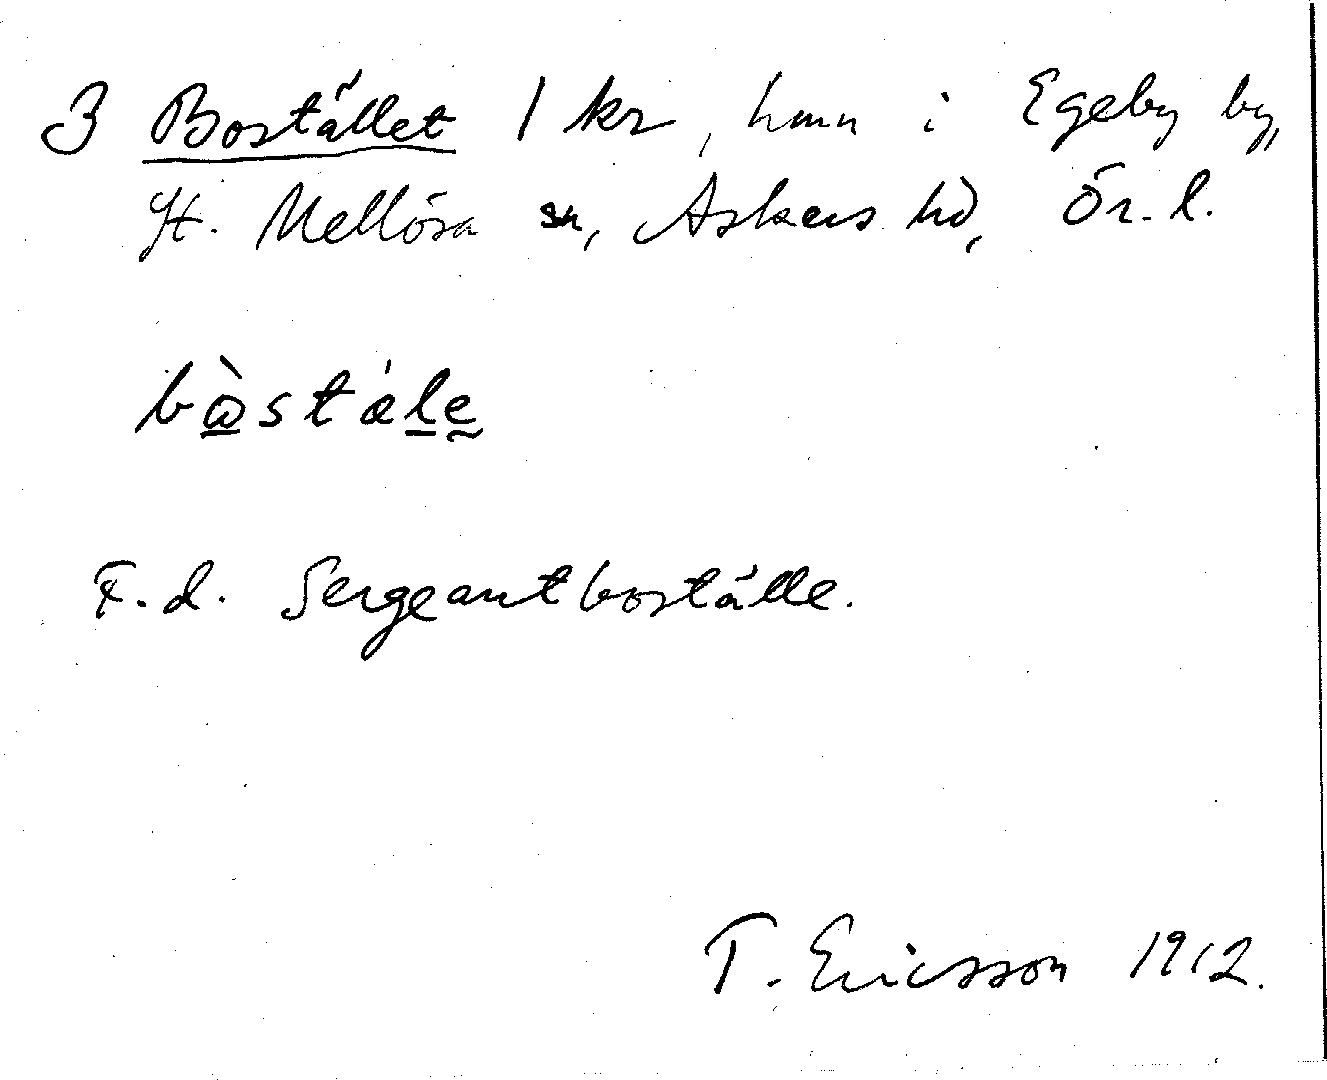 3 Bostället 1 kr, hmn i Egeby by,
St. Mellösa sn, Askers hd, Ör. l.
bòstále
F.d. Sergeantboställe.
T. Ericsson 1912.